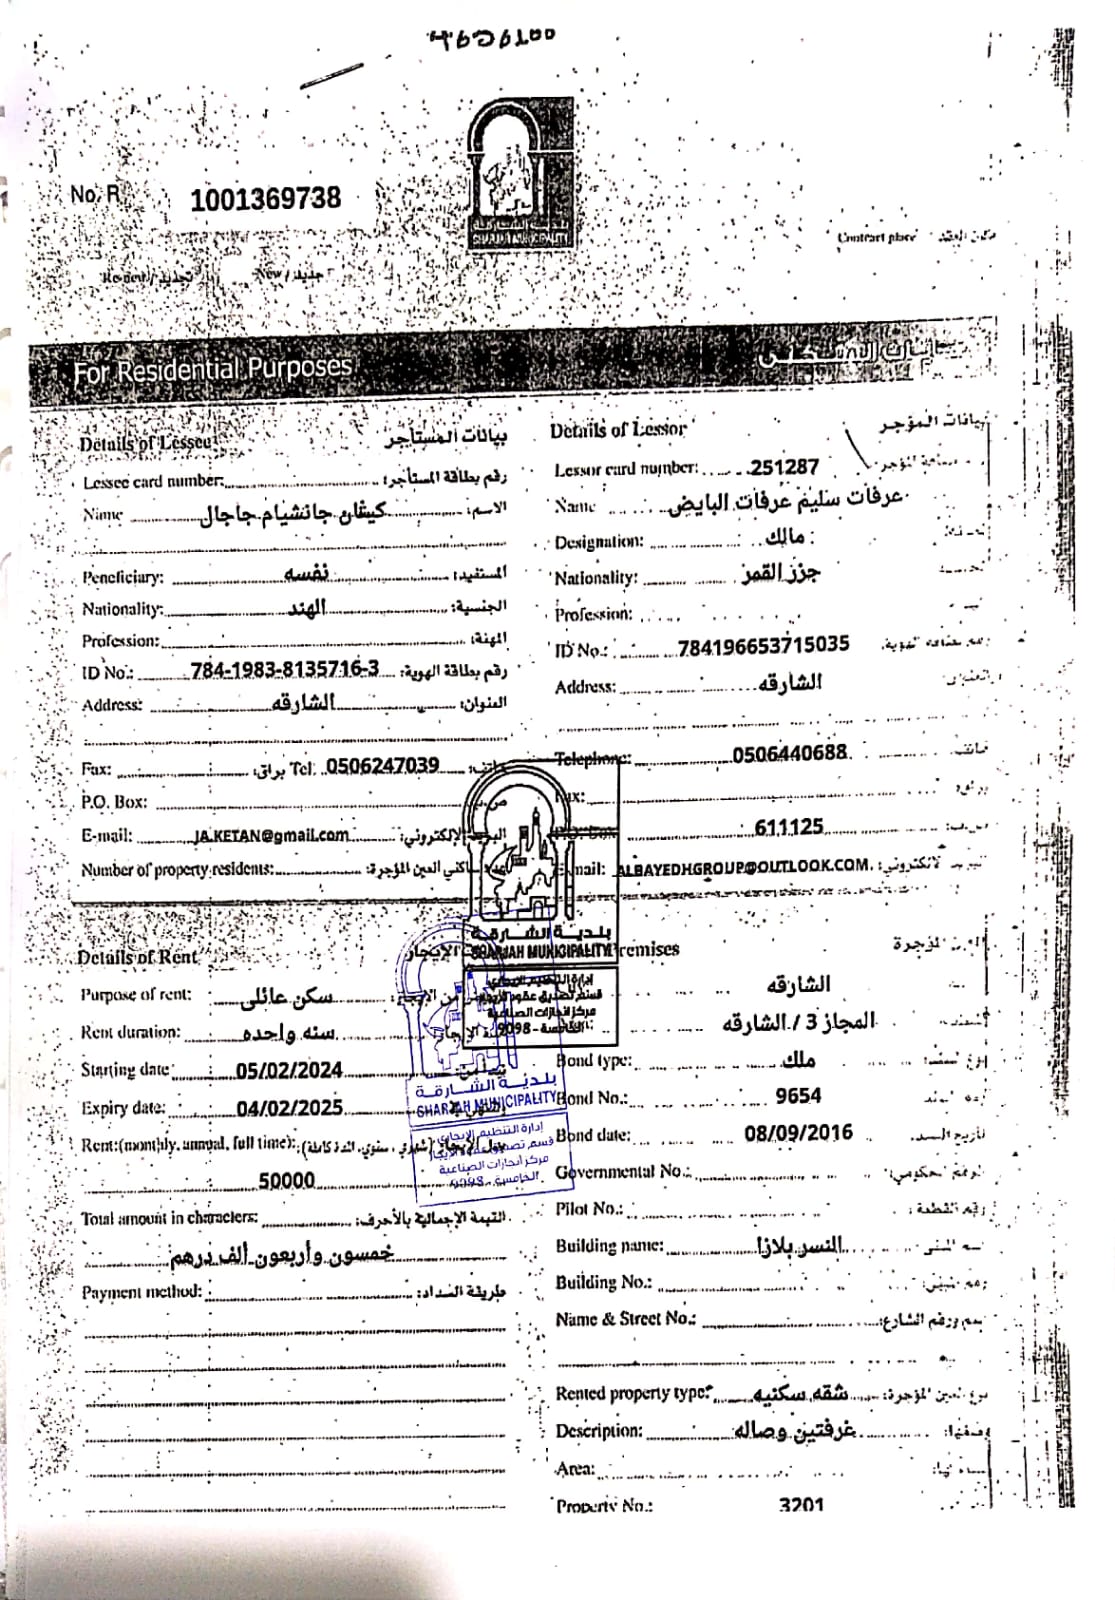 No. R 1001369738
بلدية الشارقة
SHARJAH MUNICIPALITY
Contract place مكان العقد
Renew / تجديد New / جديد
For Residential Purposes
Details of Lessee بيانات المستأجر
Lessee card number: رقم بطاقة المستأجر:
Name كيفان جانشيام جاجال الاسم:
Peneficiary: نفسه المستفيد:
Nationality: الهند الجنسية:
Profession: المهنة:
ID No.: 784-1983-8135716-3 رقم بطاقة الهوية:
Address: الشارقه العنوان:
Fax: براق: Tel: 0506247039 هاتف:
P.O. Box: ص.ب:
E-mail: JA.KETAN@gmail.com البريد الإلكتروني:
Number of property residents: ساكني العين المؤجرة:
Details of Lessor بيانات المؤجر
Lessor card number: 251287
Name عرفات سليم عرفات البايض
Designation: مالك
Nationality: جزر القمر
Profession:
ID No.: 784196653715035
Address: الشارقه العنوان:
Telephone: 0506440688 هاتف:
Fax:
P.O. Box: 611125 ص.ب:
Email: ALBAYEDHGROUP@OUTLOOK.COM
Details of Rent الإيجار
Purpose of rent: سكن عائلى من الإيجار:
Rent duration: سنه واحده
Starting date: 05/02/2024
Expiry date: 04/02/2025
Rent:(monthly, annual, full time): (شهري ، سنوي، المدة كاملة):
50000
Total amount in characters: القيمة الإجمالية بالأحرف:
خمسون وأربعون ألف درهم
Payment method: طريقة السداد:
بلدية الشارقة
SHARJAH MUNICIPALITY
إدارة التنظيم الإيجاري
قسم تصديق عقود الإيجار
مركز انجازات الصناعية
الخامسة - 9098
بلدية الشارقة
SHARJAH MUNICIPALITY
إدارة التنظيم الإيجاري
قسم تصديق عقود الإيجار
مركز أنجازات الصناعية
الخامسة - 9098
Premises المؤجرة
الشارقه
المجاز 3 / الشارقه
Bond type: ملك
Bond No.: 9654
Bond date: 08/09/2016 تاريخ السند:
Governmental No.: الرقم الحكومي:
Pilot No.: رقم القطعة:
Building name: النسر بلازا
Building No.:
Name & Street No.: ورقم الشارع:
Rented property type: شقه سكنيه المؤجرة:
Description: غرفتين وصاله
Area:
Property No.: 3201